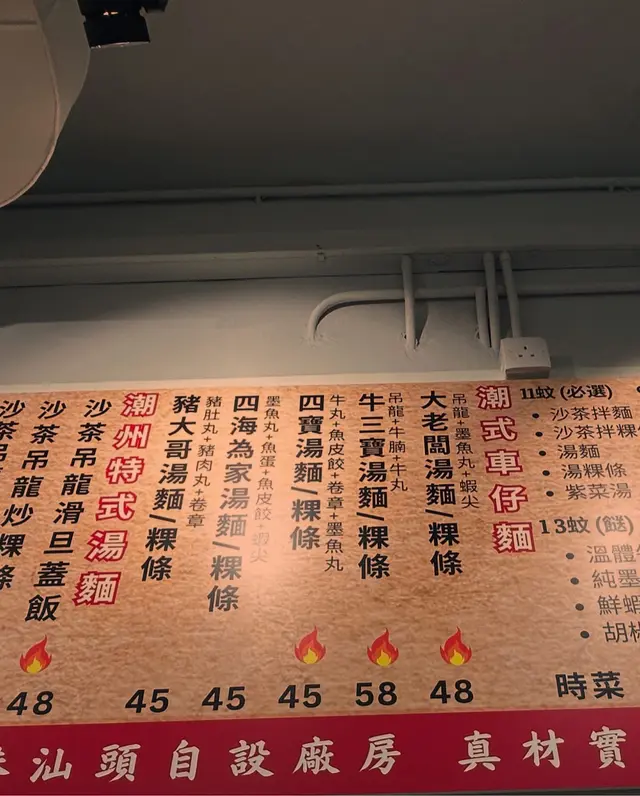 11蚊 (必選)
• 沙茶拌麵
• 沙茶拌粿
• 湯麵
• 湯粿條
• 紫菜湯
13蚊 (餸)
• 溫體
• 純墨
• 鮮蝦
• 胡椒
時菜
潮式車仔麵
大老闆湯麵/粿條
吊龍+墨魚丸+蝦尖
48
牛三寶湯麵/粿條
吊龍+牛腩+牛丸
58
四寶湯麵/粿條
牛丸+魚皮餃+卷章+墨魚丸
45
四海為家湯麵/粿條
墨魚丸+魚蛋+魚皮餃+蝦尖
45
豬大哥湯麵/粿條
豬肚丸+豬肉丸+卷章
45
潮州特式湯麵
沙茶吊龍滑旦蓋飯
48
沙茶吊龍炒粿條
汕頭自設廠房 真材實